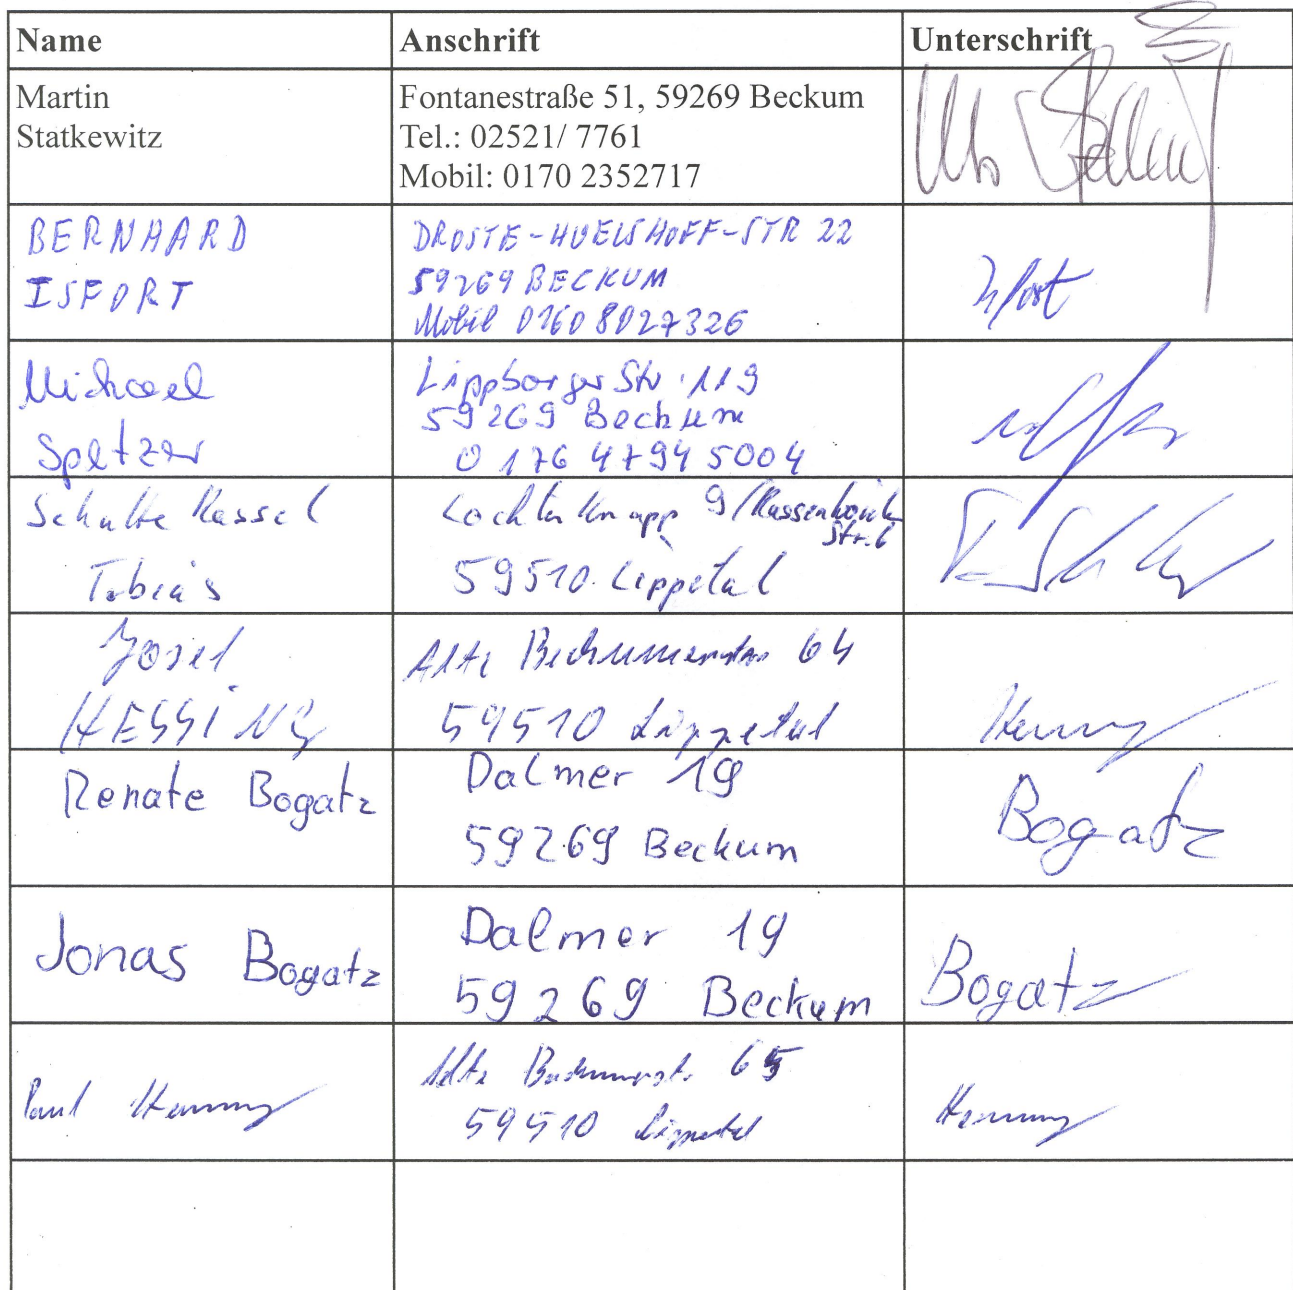 Name Anschrift Unterschrift
Martin
Statkewitz
Fontanestraße 51, 59269 Beckum
Tel.: 02521/ 7761
Mobil: 0170 2352717
BERNHARD
ISFORT
DROSTE-HUELSHOFF-STR 22
59269 BECKUM
Mobil 0160 8027326
Isfort
Michael
Speltzer
Lippborger Str. 119
59269 Beckum
0176 47945004
Schulte Kassel
Tobias
59510 Lippetal
Josef
HESSING
Alte Beckumerstr 64
59510 Lippetal
Hessing
Renate Bogatz
Dalmer 19
59269 Beckum
Bogatz
Jonas Bogatz
Dalmer 19
59269 Beckum
Bogatz
Paul Hessing
Alte Beckumerstr. 65
59510 Lippetal
Hessing